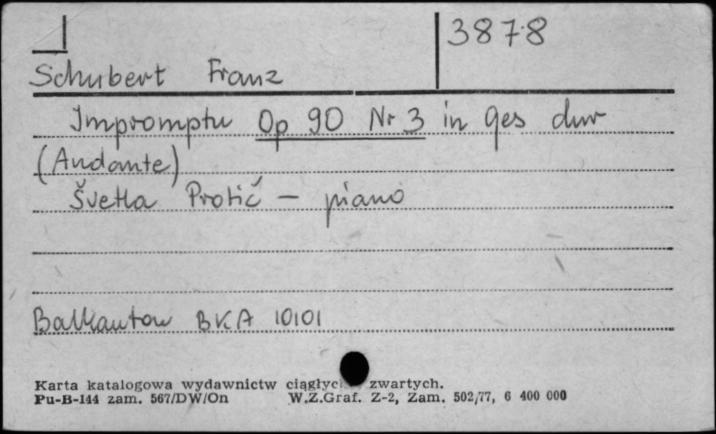 3878
Schubert Franz
Impromptu Op 90 Nr 3 in Ges dur
(Andante)
Švetla Protič - piano
Balkanton BKA 10101
Karta katalogowa wydawnictw ciągłyc zwartych.
Pu-B-144 zam. 567/DW/On W.Z.Graf. Z-2, Zam. 502/77, 6 400 000